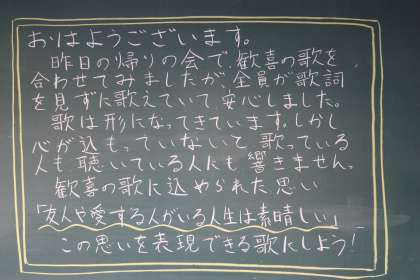 おはようございます。
昨日の帰りの会で、歓喜の歌を
合わせてみましたが、全員が歌詞
を見ずに歌えていて、安心しました。
歌は形になってきています。しかし
心が込もっていないと、歌っている
人も聴いている人にも響きません。
歓喜の歌に込められた思い
「友人や愛する人がいる人生は素晴しい」
この思いを表現できる歌にしよう!